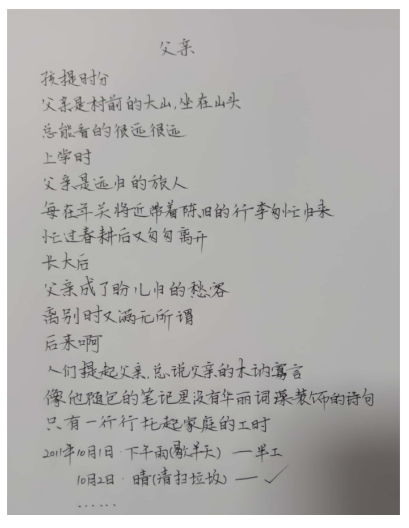 父亲
孩提时分
父亲是村前的大山,坐在山头
总能看的很远很远
上学时
父亲是远归的旅人
每在年关将近带着陈旧的行李匆忙归来
忙过春耕后又匆匆离开
长大后
父亲成了盼儿归的愁容
离别时又满无所谓
后来啊
人们提起父亲,总说父亲的木讷寡言
像他随包的笔记里没有华丽词藻装饰的诗句
只有一行行托起家庭的工时
2011年10月1日·下午雨(歇半天) — 半工
10月2日·晴(清扫垃圾) — ✓
……